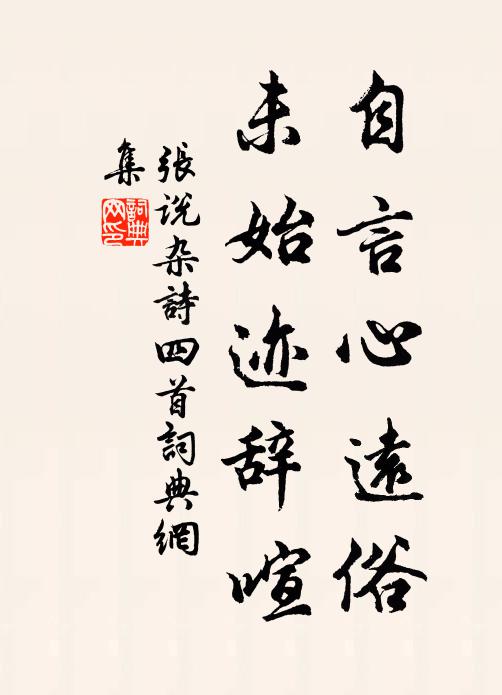 自言心遠俗
未始迹辞喧
張说杂詩四首詞典網
集
詞典网印